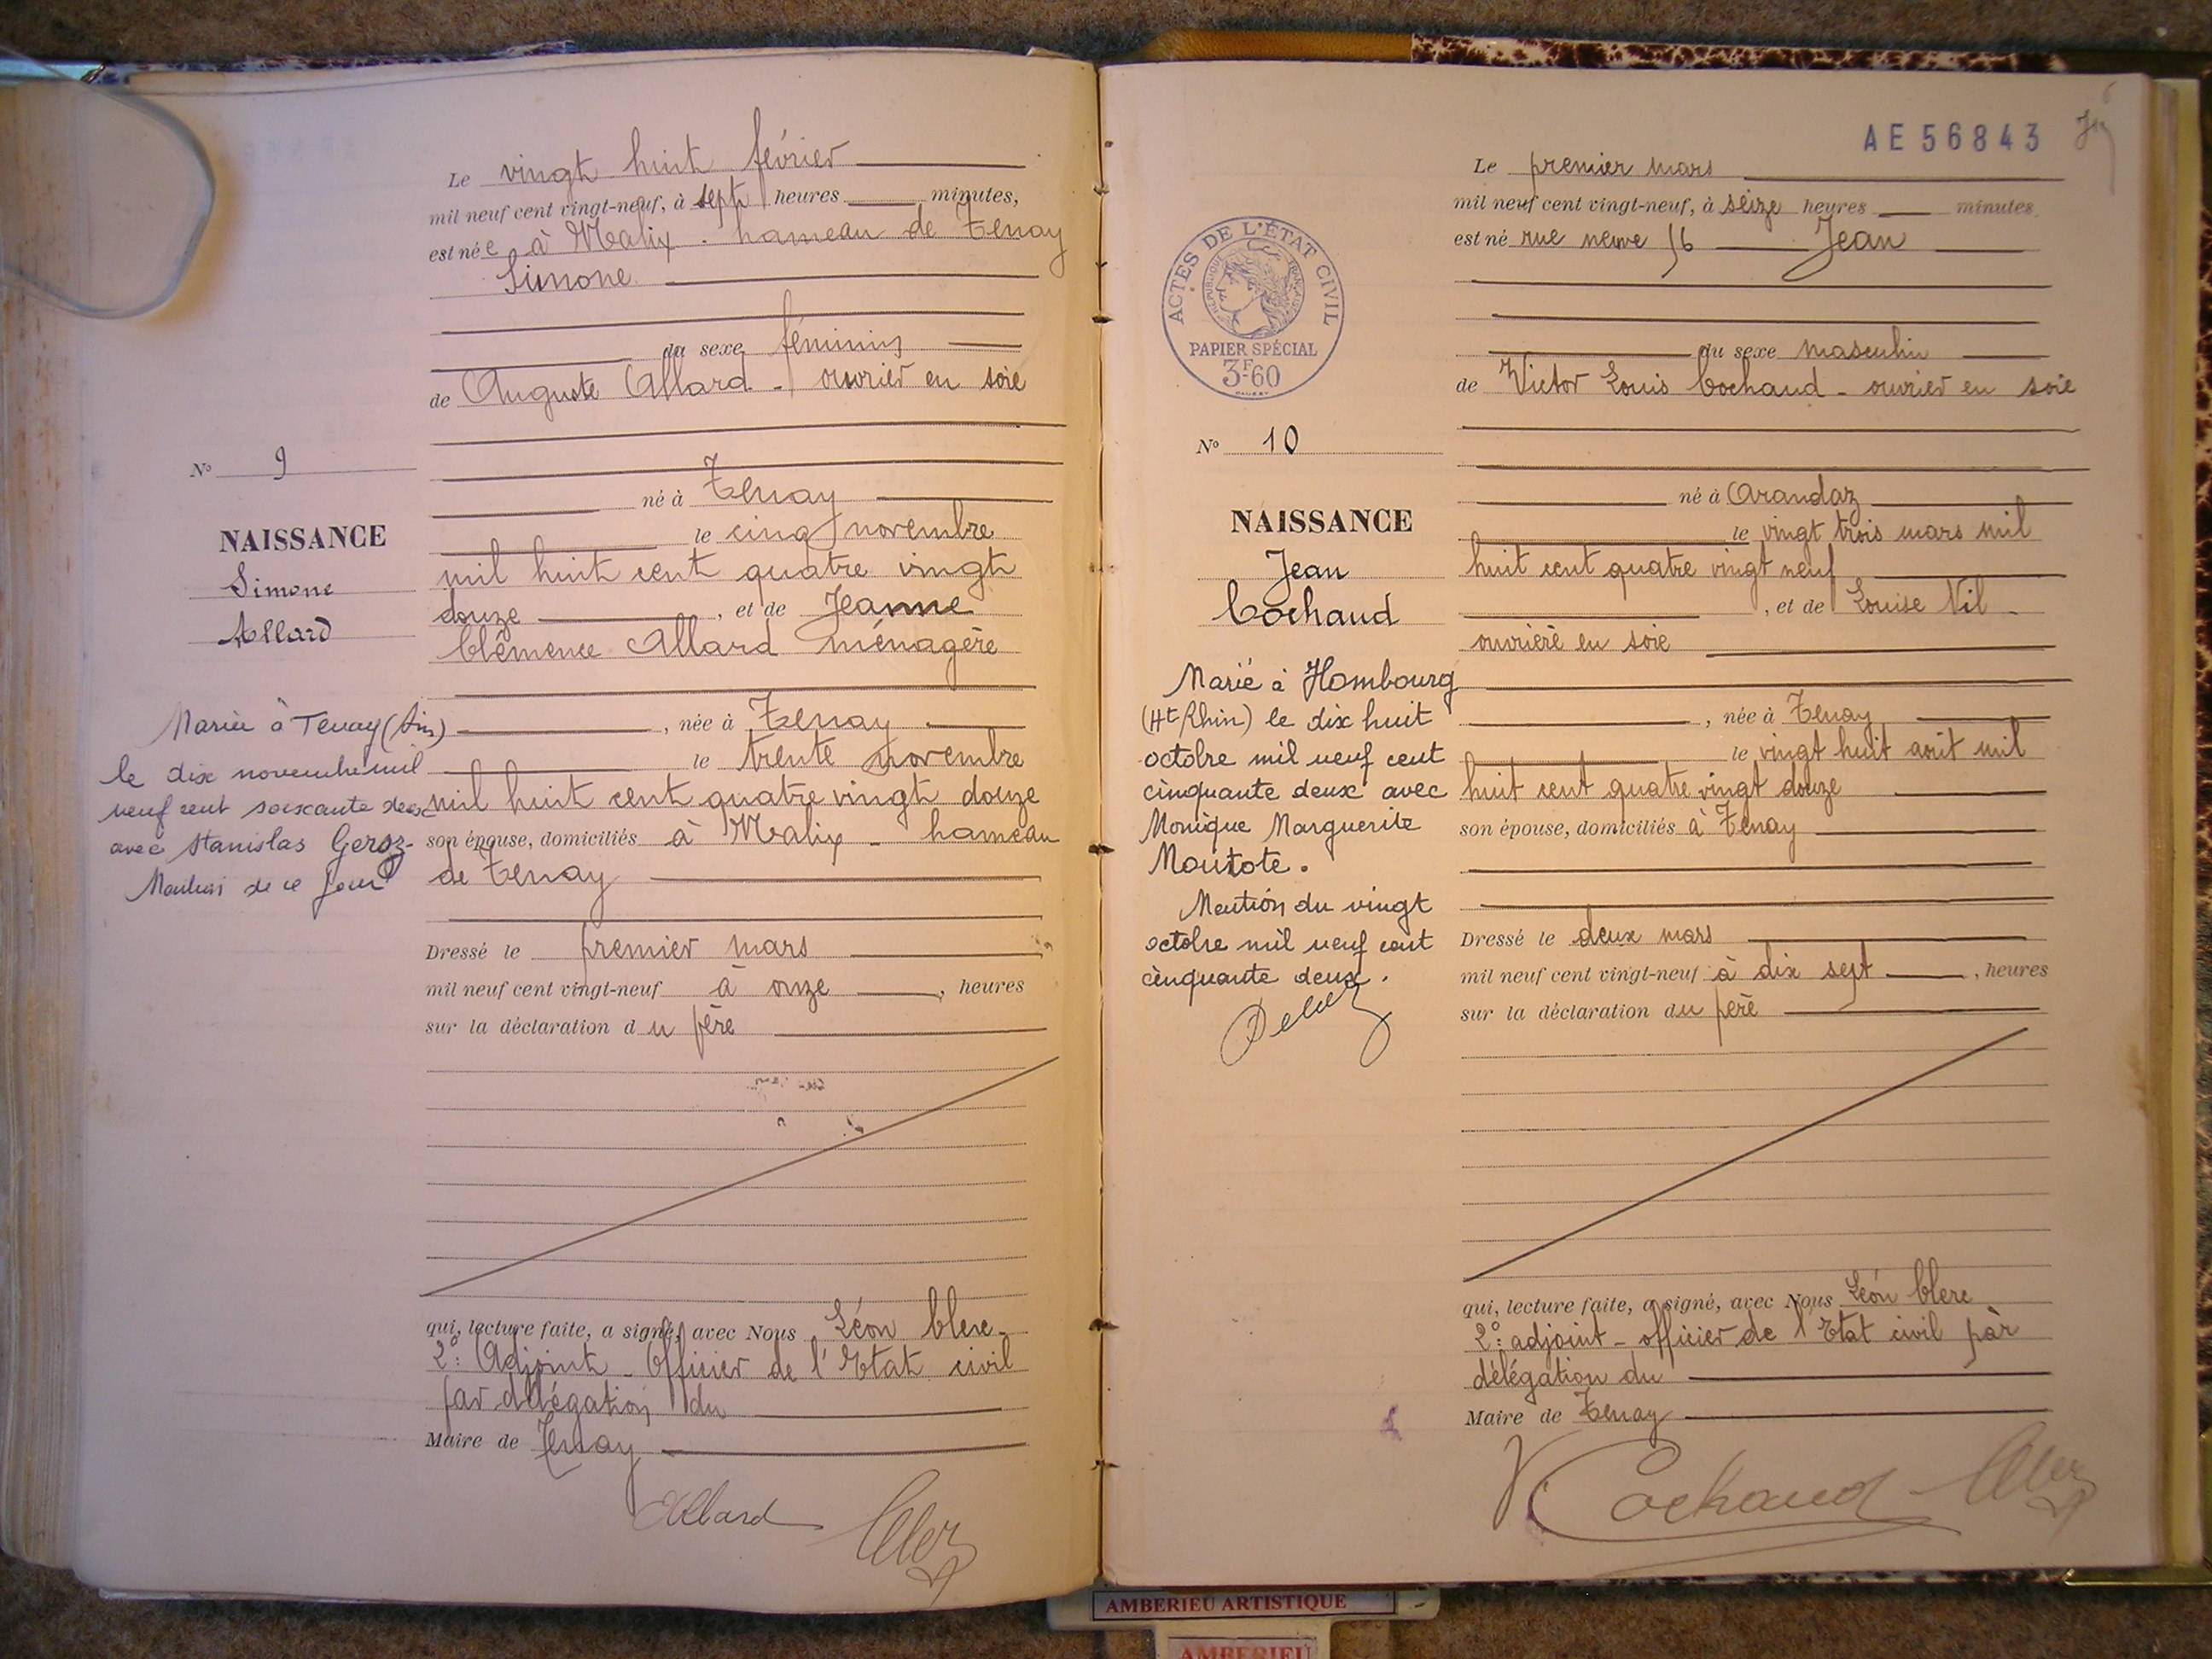 Le vingt huit février
mil neuf cent vingt-neuf, à sept heures minutes,
est née à Malix - hameau de Tenay
Simone
du sexe féminin
de Auguste Allard - ouvrier en soie
né à Tenay
le cinq novembre
mil huit cent quatre vingt
douze, et de Jeanne
Clémence Allard ménagère
, née à Tenay
le trente novembre
mil huit cent quatre vingt douze
son épouse, domiciliés à Malix - hameau
de Tenay
Dressé le premier mars
mil neuf cent vingt-neuf à onze, heures
sur la déclaration du père
qui, lecture faite, a signé, avec Nous Léon Clerc
2e: Adjoint - Officier de l'Etat civil
par délégation du
Maire de Tenay
Allard Clerc
No 9
NAISSANCE
Simone
Allard
Mariée à Tenay (Ain)
le dix novembre mil
neuf cent soixante deux
avec Stanislas
Mention de ce jour
AE 56843
Le premier mars
mil neuf cent vingt-neuf, à seize heures minutes
est né rue neuve 56 Jean
du sexe masculin
de Victor Louis Cochaud - ouvrier en soie
né à Arandaz
le vingt trois mars mil
huit cent quatre vingt neuf
, et de Louise Nil -
ouvrière en soie
, née à Tenay
le vingt huit août mil
huit cent quatre vingt douze
son épouse, domiciliés à Tenay
Dressé le deux mars
mil neuf cent vingt-neuf à dix sept, heures
sur la déclaration du père
qui, lecture faite, a signé, avec Nous Léon Clerc
2e: adjoint - officier de l'Etat civil par
délégation du
Maire de Tenay
V Cochaud Clerc
ACTES DE L'ÉTAT CIVIL
RÉPUBLIQUE FRANÇAISE
PAPIER SPÉCIAL
3F60
No 10
NAISSANCE
Jean
Cochaud
Marié à Hombourg
(Ht Rhin) le dix huit
octobre mil neuf cent
cinquante deux avec
Monique Marguerite
Moutote.
Mention du vingt
octobre mil neuf cent
cinquante deux.
AMBERIEU ARTISTIQUE
AMBERIEU